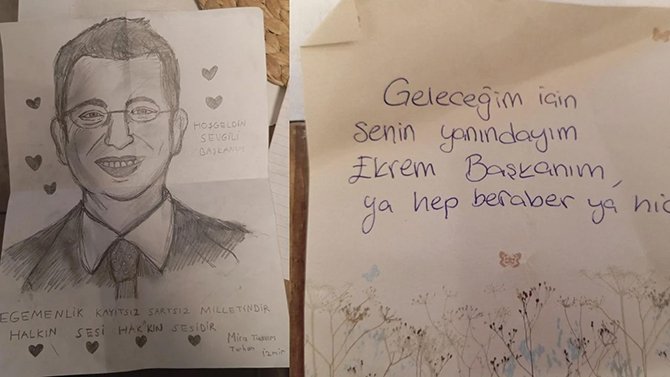 HOŞGELDİN
SEVGİLİ
BAŞKANIM
EGEMENLİK KAYITSIZ ŞARTSIZ MİLLETİNDİR
HALKIN SESİ HAK'KIN SESİDİR
Mira
Turhan İzmir
Geleceğim için
senin yanındayım
Ekrem Başkanım,
ya hep beraber ya hiç